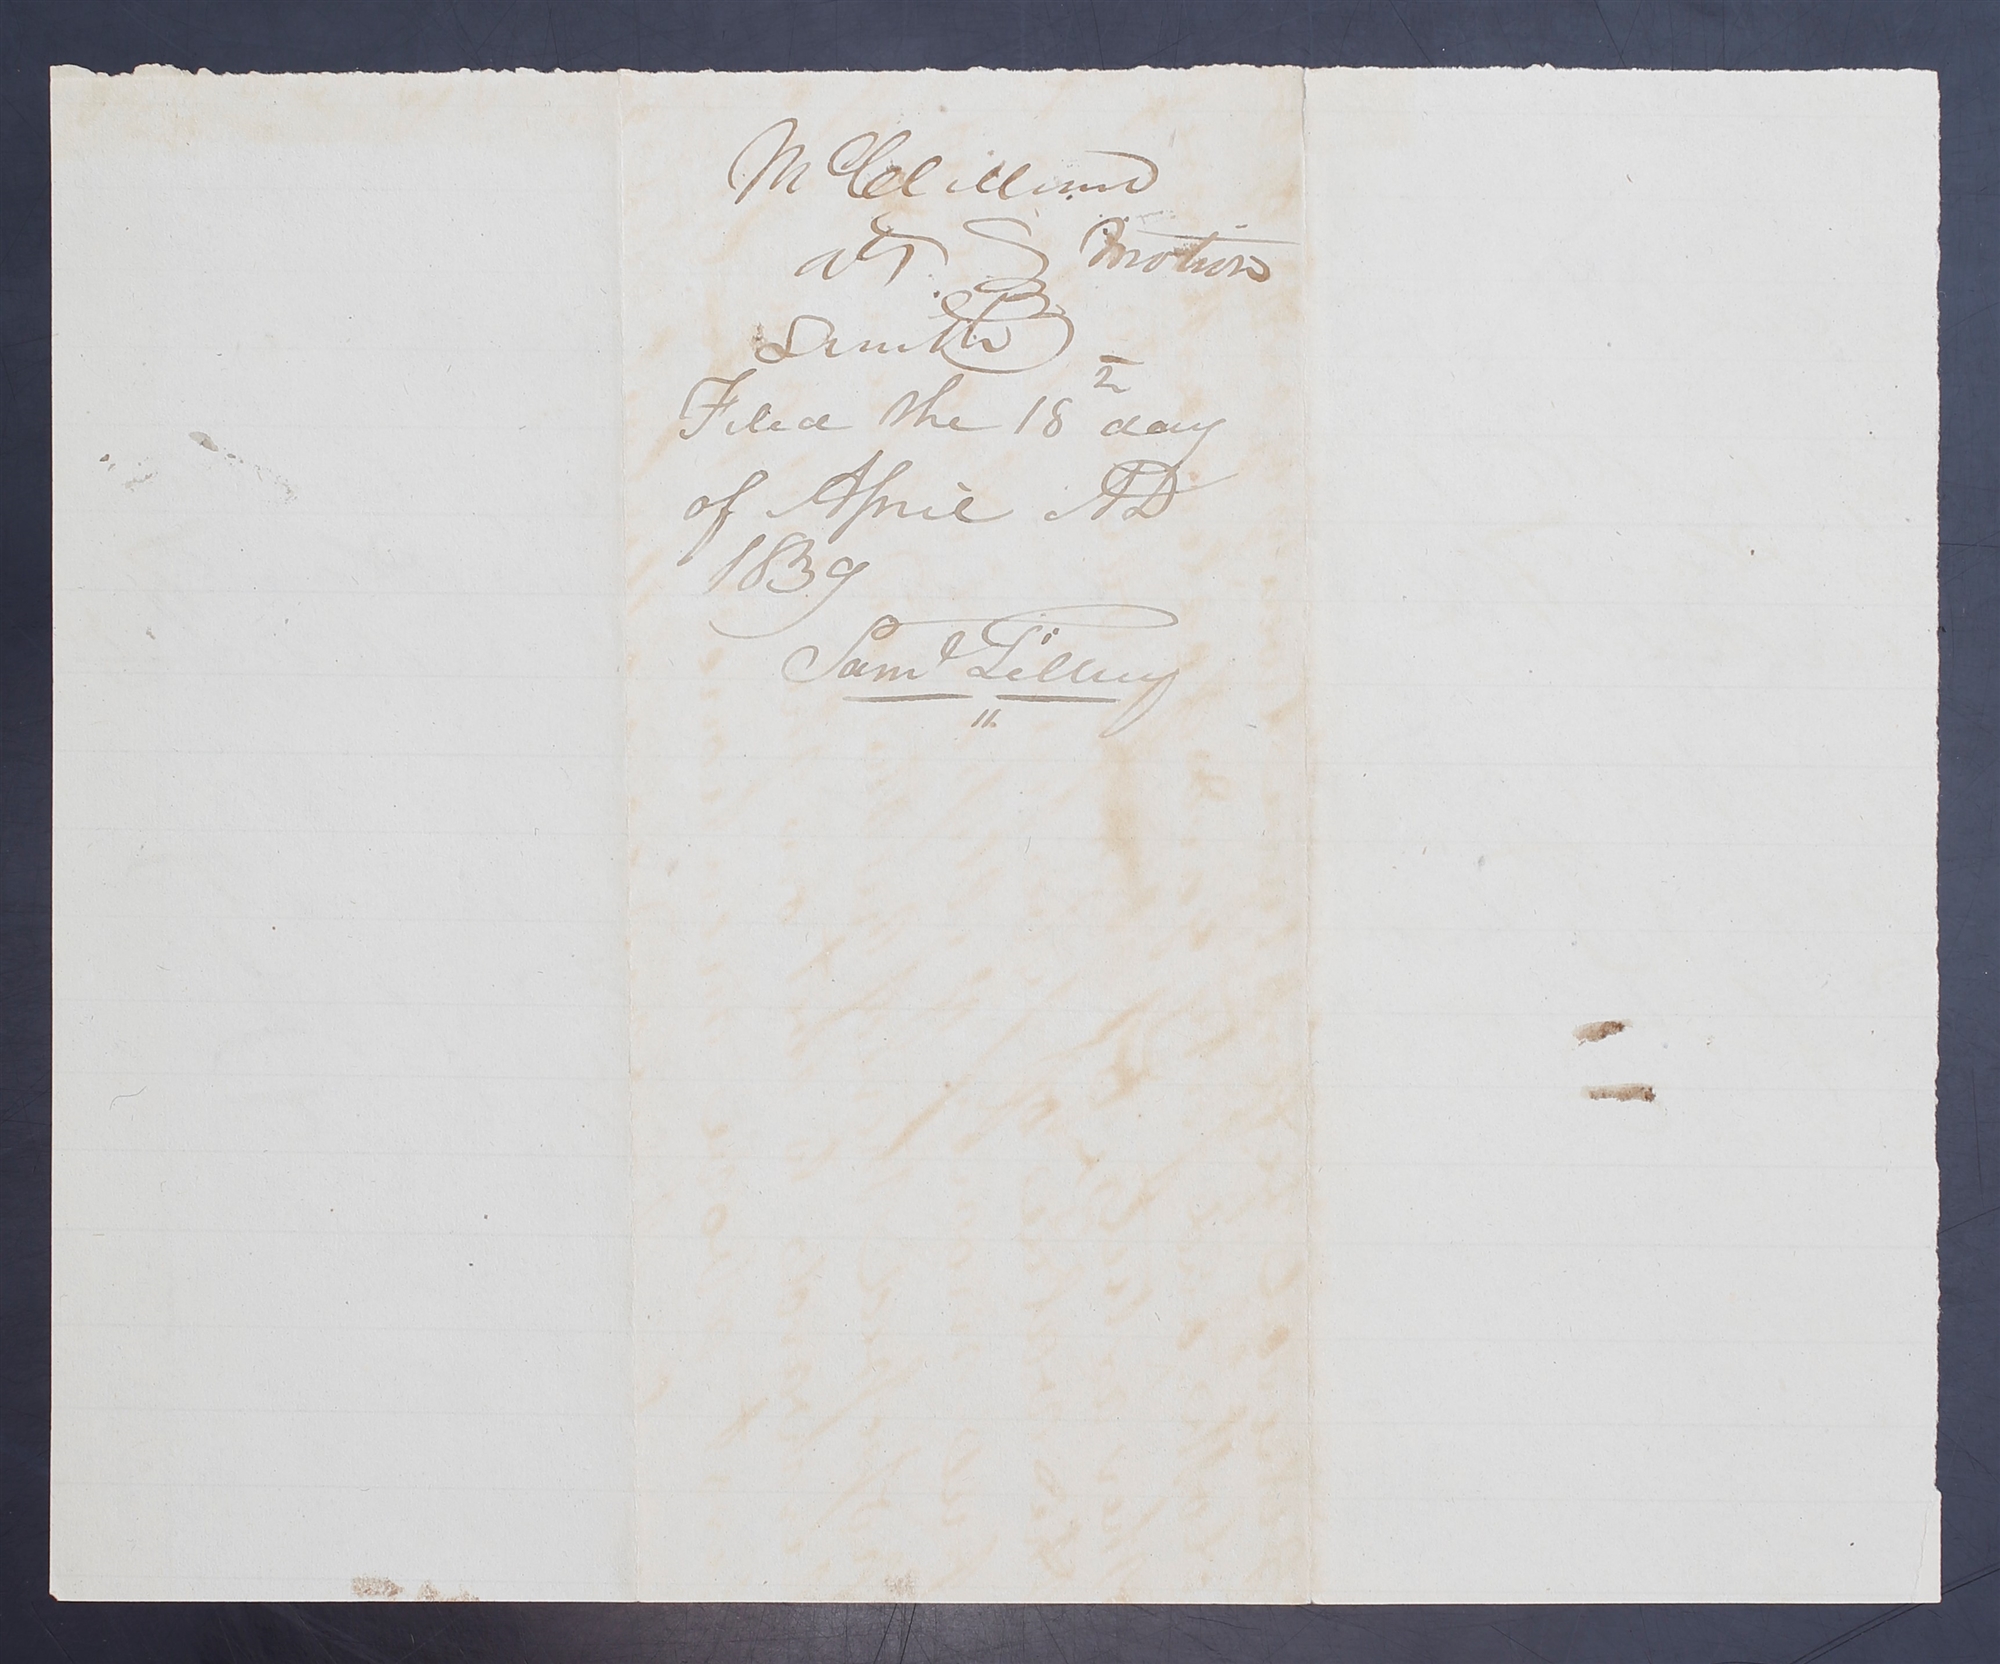 McWilliams
vs. } Motion
Smith
Filed the 18 day
of April AD
1839
Saml Tilley